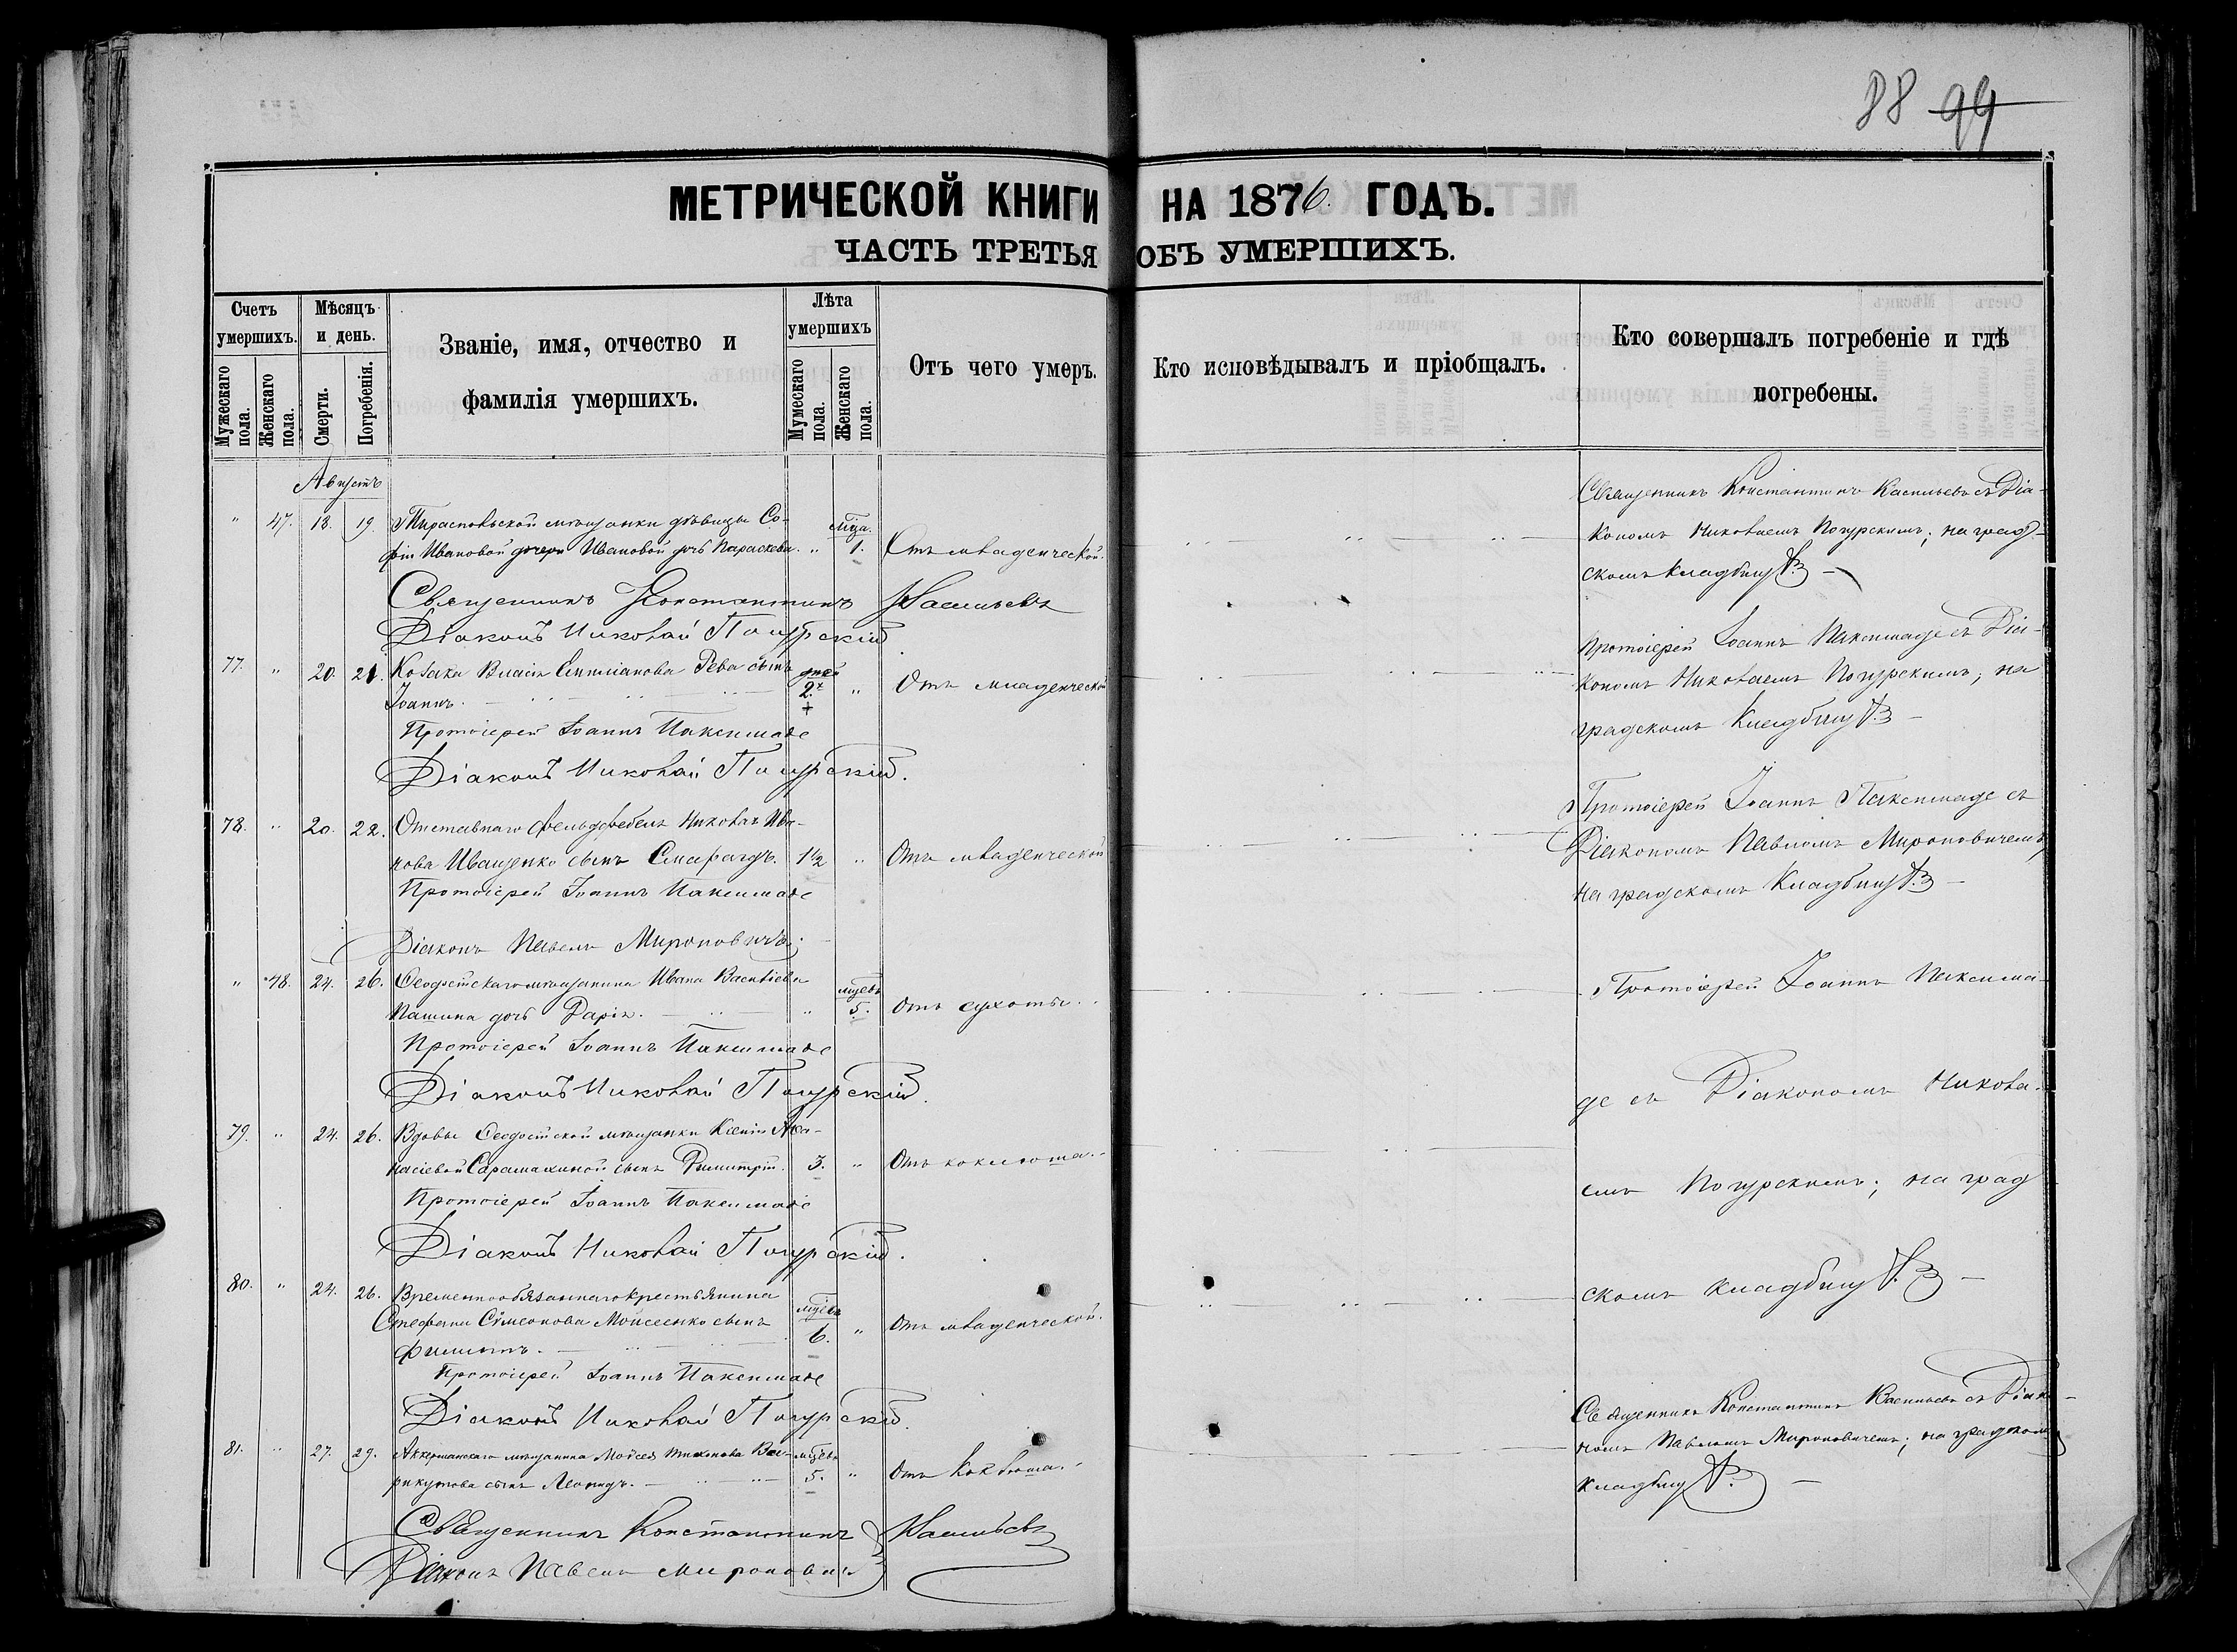 88 99
МЕТРИЧЕСКОЙ КНИГИ НА 1876. ГОДЪ.
ЧАСТЬ ТРЕТЬЯ ОБЪ УМЕРШИХЪ.
Счетъ умершихъ.
Мужескаго пола.
Женскаго пола.
Мѣсяцъ и день.
Смерти.
Погребенія.
Званіе, имя, отчество и
фамилія умершихъ.
Лѣта умершихъ
Мужескаго пола.
Женскаго пола.
Отъ чего умеръ.
Кто исповѣдывалъ и пріобщалъ.
Кто совершалъ погребеніе и гдѣ
погребены.
Августъ
" 47. 18. 19. Тираспольской мѣщанки дѣвицы Со-
фіи Ивановой дочери Ивановой дочь Параскева. " мѣца. 1. Отъ младенческой.
Священникъ Константинъ Васильевъ съ Діа-
кономъ Николаемъ Погурскимъ; на град-
скомъ кладбищѣ
Священникъ Константинъ Васильевъ
Діаконъ Николай Погурскій
77. " 20. 21. Козака Власія Емиліанова Рева сынъ
Іоаннъ. дней 2. " Отъ младенческой
Протоіерей Іоаннъ Паксимаде съ Діа-
кономъ Николаемъ Погурскимъ; на
градскомъ Кладбищѣ
Протоіерей Іоаннъ Паксимаде
Діаконъ Николай Погурскій.
78. " 20. 22. Отставнаго фельдфебеля Николая Ива-
нова Иващенко сынъ Смарагдъ. 1½ " Отъ младенческой
Протоіерей Іоаннъ Паксимаде съ
Діакономъ Павломъ Мироновичемъ,
на градскомъ Кладбищѣ
Протоіерей Іоаннъ Паксимаде
Діаконъ Павелъ Мироновичъ.
" 48. 24. 26. Ѳеодосійскаго мѣщанина Ивана Василіева
Пашина дочь Дарія. " мѣцевъ 5. Отъ сухоты.
Протоіерей Іоаннъ Паксимаде
Діаконъ Николай Погурскій.
79. " 24. 26. Вдовы Ѳеодосійской мѣщанки Ксеніи Аѳа-
насіевой сынъ Димитрій. 3. " Отъ коклюша.
Протоіерей Іоаннъ Паксимаде
Діаконъ Николай Погурскій.
80. " 24. 26. Временнообязаннаго крестьянина
Стефана Сѵмеонова Моисеенко сынъ
Филиппъ. мѣцевъ 6. " Отъ младенческой.
Протоіерей Іоаннъ Паксима-
де съ Діакономъ Никола-
емъ Погурскимъ; на град
скомъ кладбищѣ
Протоіерей Іоаннъ Паксимаде
Діаконъ Николай Погурскій.
81. " 27. 29. Аккерманскаго мѣщанина Моѵсея Тихонова
сынъ Леонидъ. мѣцевъ 5. " Отъ Коклюша.
Священникъ Константинъ Васильевъ съ Діако-
номъ Павломъ Мироновичемъ; на градскомъ
кладбищѣ
Священникъ Константинъ Васильевъ
Діаконъ Павелъ Мироновичъ